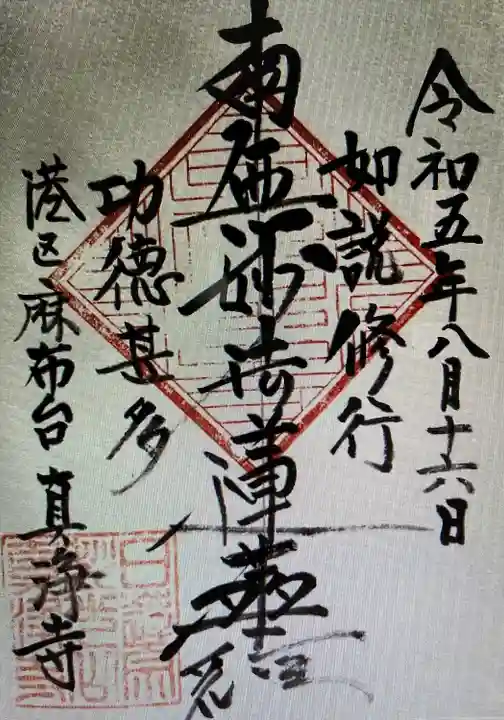 令和五年八月十六日
如説修行
南無妙法蓮華経
功徳甚多
港区麻布台 真浄寺